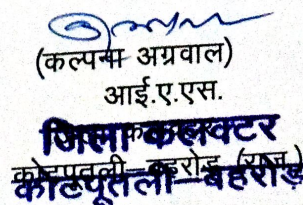 (कल्पना अग्रवाल)
आई.ए.एस.
जिला कलक्टर
कोटपूतली–बहरोड़ (राज.)
कोटपूतली–बहरोड़